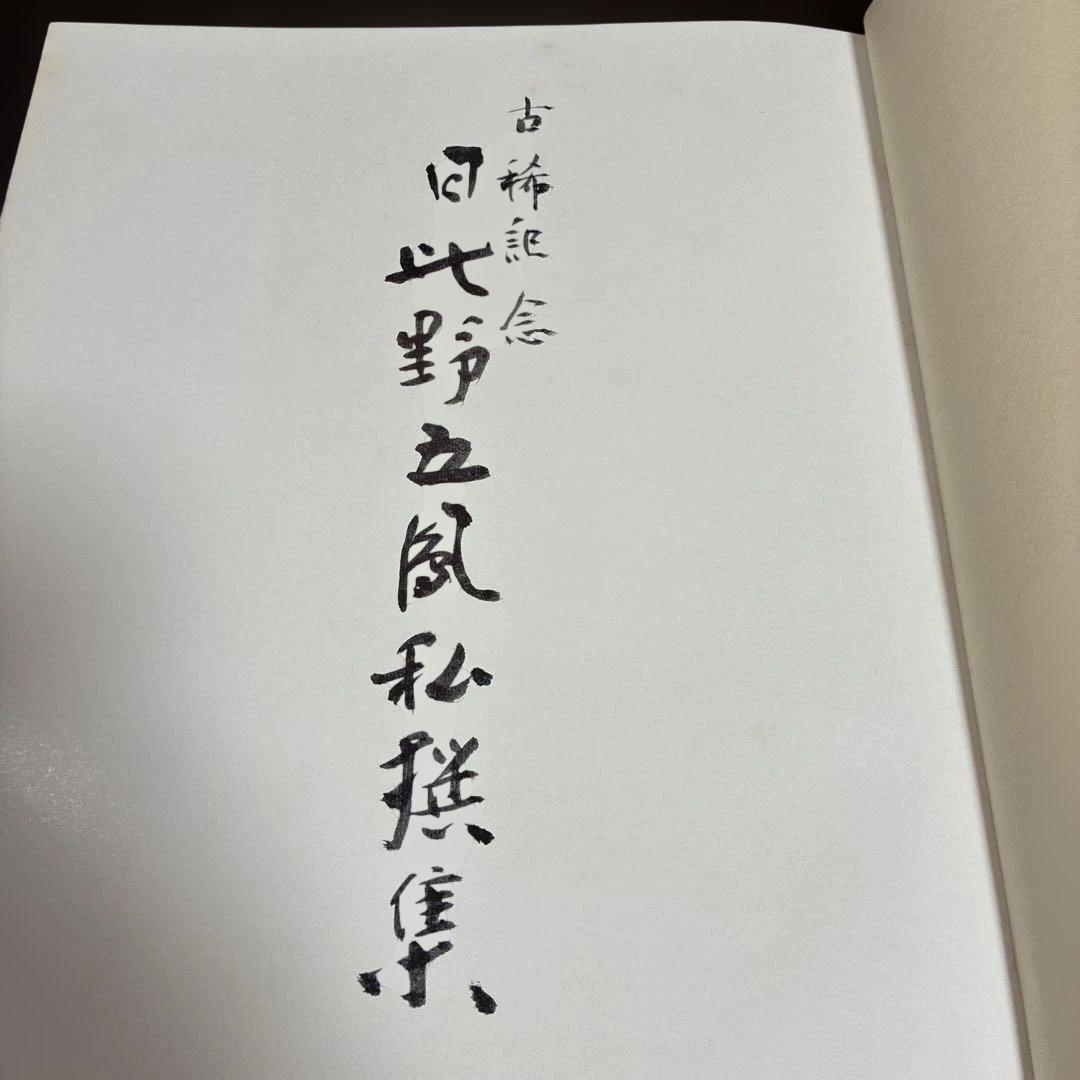 古稀記念
日比野五鳳私撰集